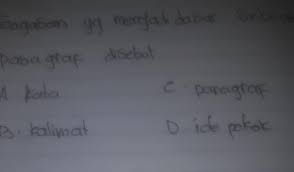 gagasan yg menjadi dasar
paragraf disebut
A kata
C. paragraf
B. kalimat
D. ide pokok